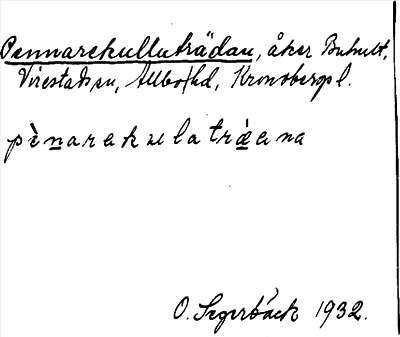 Pennarekulluträdan, åker Buhult,
Virestad sn, Allbo hd, Kronobergs l.
pènarekulatrǽena
O. Segerbäck 1932.